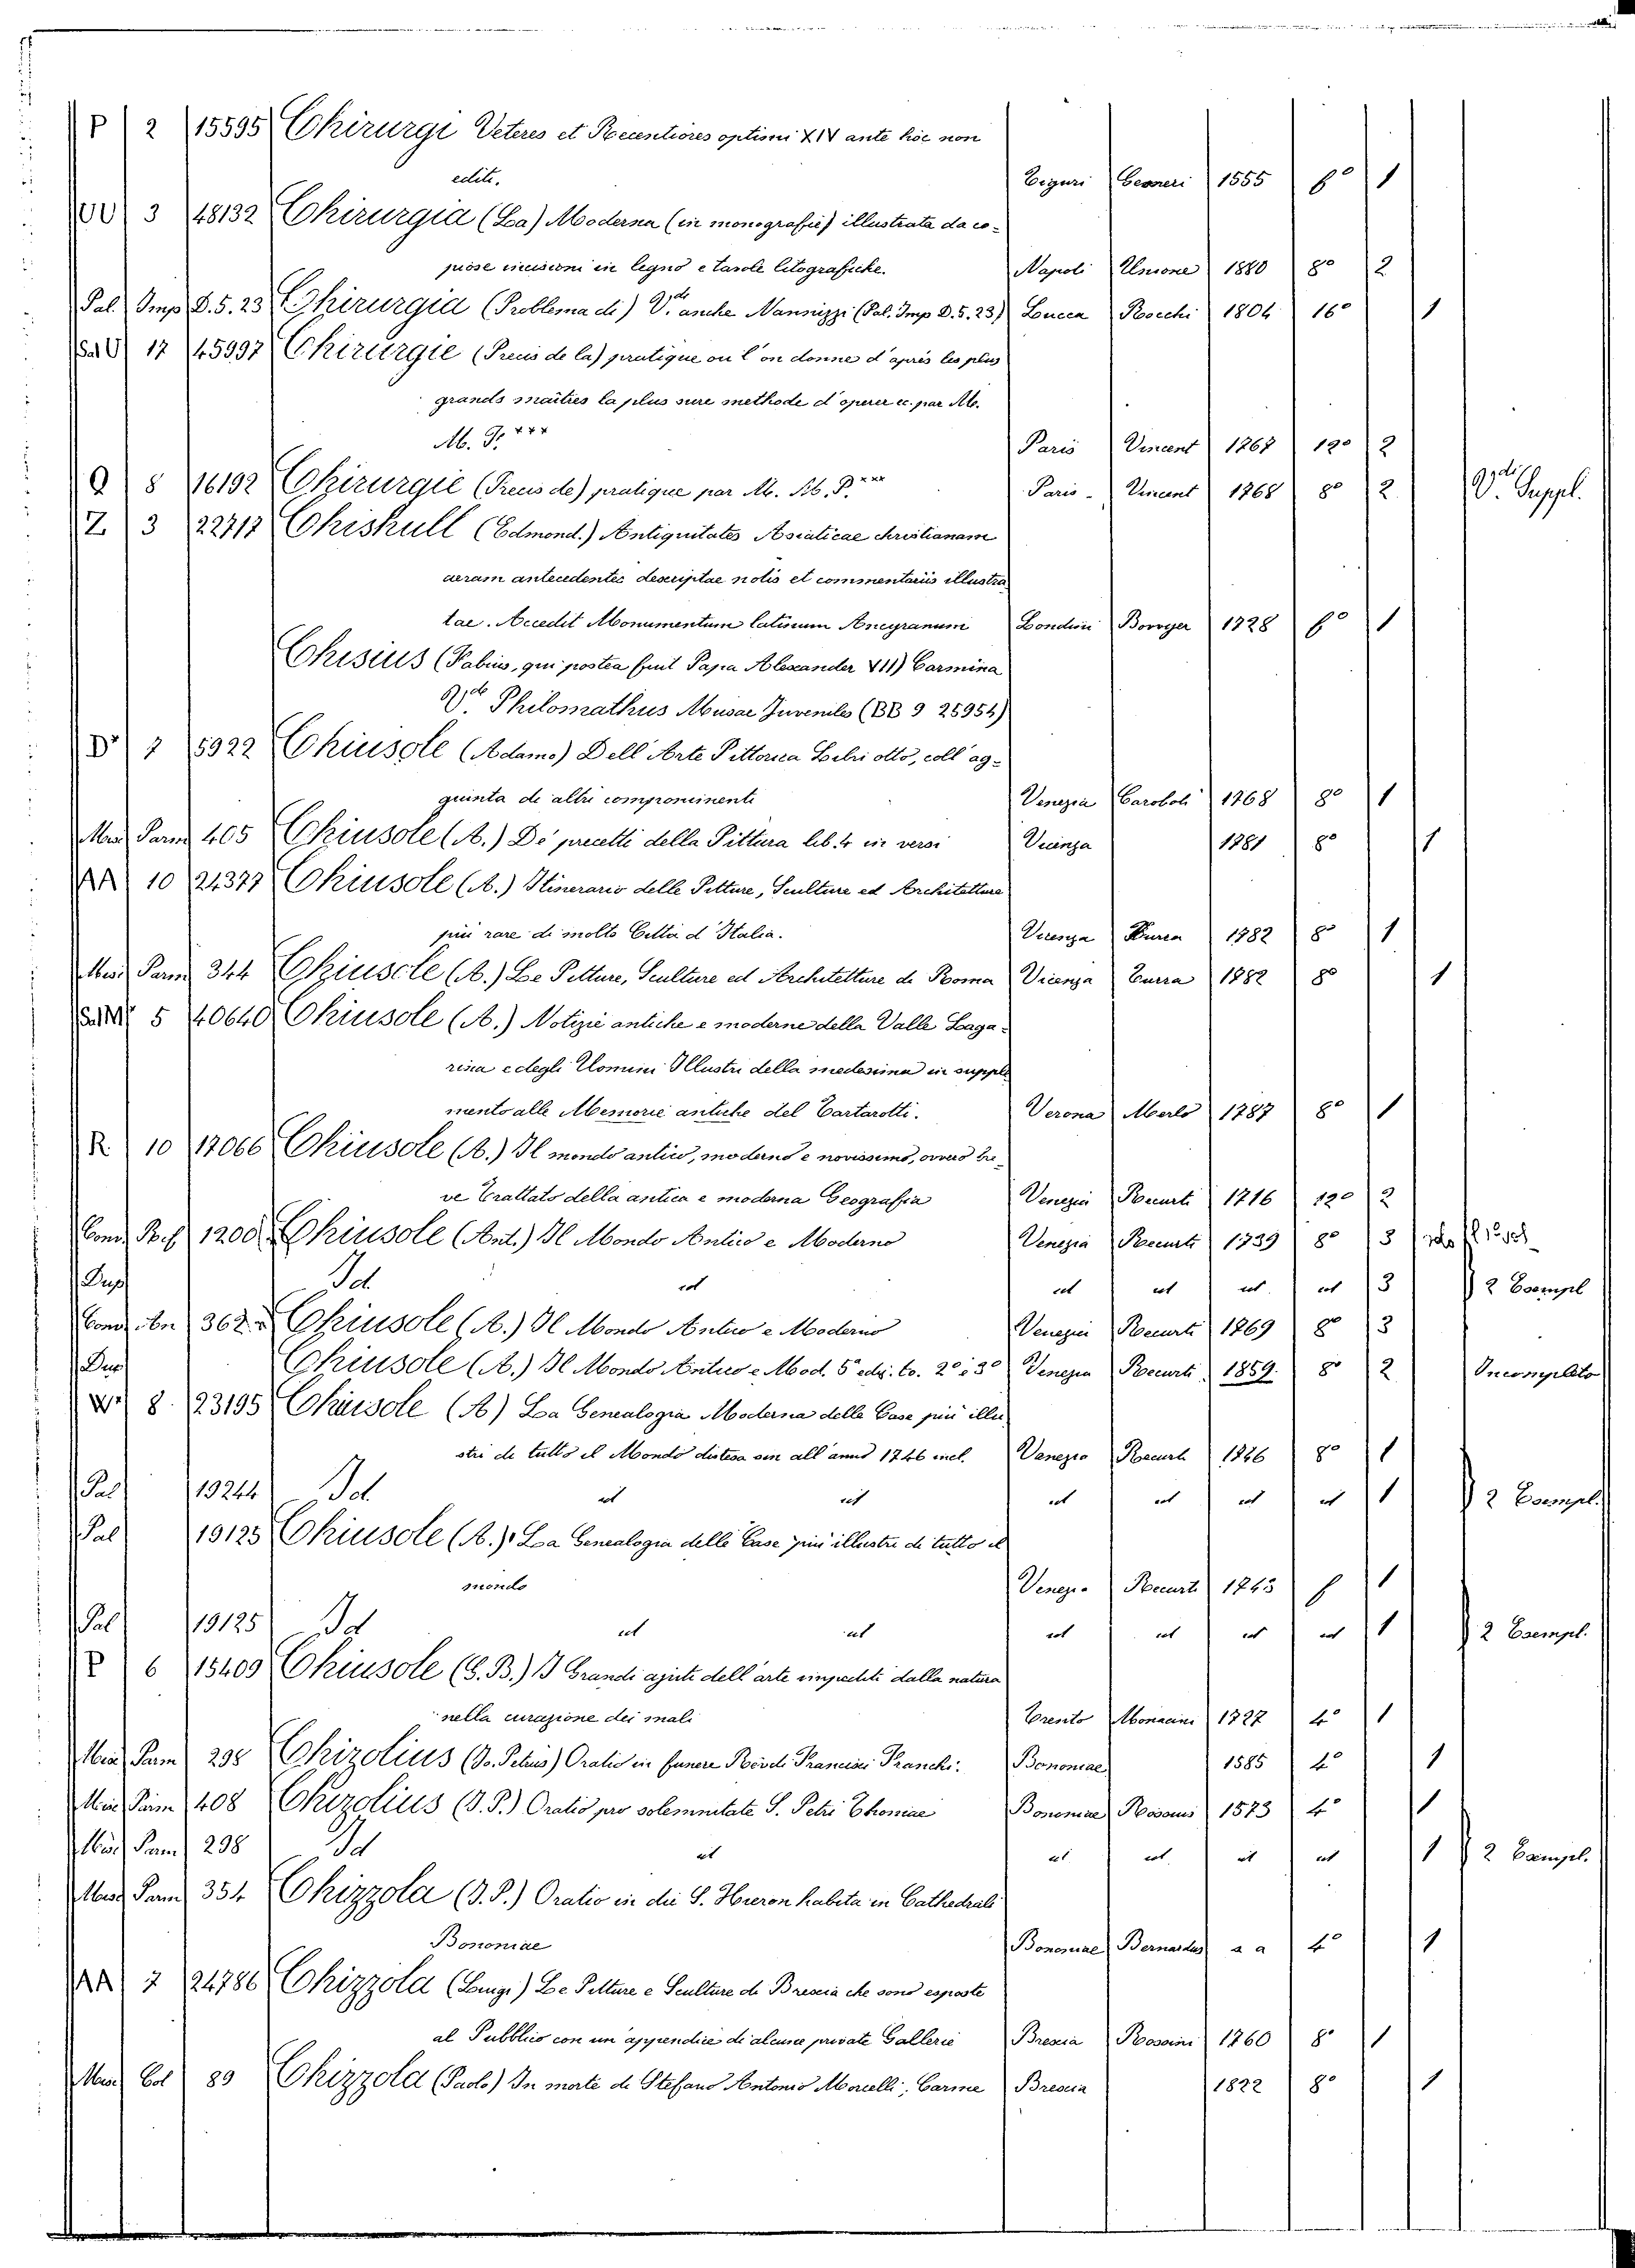 P 2 15595 Chirurgi Veteres et Recentiores optimi XIV ante hoc non
editi. Tiguri Gesneri 1555 f° 1
3 48132 Chirurgia (La) Moderna (in monografie) illustrata da co-
piose incisioni in legno e tavole litografiche. Napoli Unione 1880 8° 2
Pal. Imp D.5.23 Chirurgia (Problema di) V.di anche Nannizzi (Pal. Imp D.5.23) Lucca Rocchi 1804 16° 1
17 45997 Chirurgie (Precis de la) pratique ou l'on donne d'après les plus
grands maitres la plus sure methode d'operer ec. par M.
M. P. *** Paris Vincent 1767 12° 2
Q 8 16192 Chirurgie (Precis de) pratique par M. M. P. *** Paris - Vincent 1768 8° 2 V.di Suppl.
Z 3 22717 Chiskull (Edmond.) Antiquitates Asiaticae christianam
aeram antecedentes descriptae notis et commentariis illustra
tae. Accedit Monumentum latinum Ancyranum Londini Bowyer 1728 f° 1
Chisius (Fabius, qui postea fuit Papa Alexander VII) Carmina
V.de Philomathus Musae Juveniles (BB 9 25954)
D 7 5922 Chiusole (Adamo) Dell'Arte Pittorica Libri otto, coll'ag-
giunta di altri componimenti Venezia Caroboli 1768 8° 1
Mss. Parm 405 Chiusole (A.) De' precetti della Pittura lib. 4 in versi Vicenza 1781 8° 1
AA 10 24377 Chiusole (A.) Itinerario delle Pitture, Sculture ed Architetture
piu rare di molte Città d'Italia. Vicenza Turra 1782 8° 1
Parm 344 Chiusole (A.) Le Pitture, Sculture ed Architetture di Roma Vicenza Turra 1782 8° 1
5 40640 Chiusole (A.) Notizie antiche e moderne della Valle Laga-
rina e degli Uomini Illustri della medesima in supple
mento alle Memorie antiche del Tartarotti. Verona Merlo 1787 8° 1
R. 10 17066 Chiusole (A.) Il mondo antico, moderno e novissimo, ovvero bre-
ve trattato della antica e moderna Geografia Venezia Recurti 1716 12° 2
Cons. 1200 Chiusole (Ant.) Il Mondo Antico e Moderno Venezia Recurti 1739 8° 3
Dup Id id id id id id 3 2 Esempl
Cons. 362 Chiusole (A.) Il Mondo Antico e Moderno Venezia Recurti 1769 8° 3
Dup Chiusole (A.) Il Mondo Antico e Mod. 5° ediz. to. 2° e 3° Venezia Recurti 1859. 8° 2 Incompleto
W 8. 23195 Chiusole (A) La Genealogia Moderna delle Case piu illu
stri di tutto il Mondo distesa sin all'anno 1746 incl. Venezia Recurti 1746 8° 1
Pal 19244 Id id id id id id id 1 2 Esempl.
Pal 19125 Chiusole (A.) La Genealogia delle Case piu illustri di tutto il
mondo Venezia Recurti 1743 f 1
Pal 19125 Id id id id id id id 1 2 Esempl.
P 6 15409 Chiusole (G. B.) I Grandi ajuti dell'arte impediti dalla natura
nella curazione dei mali Trento Monauni 1727 4° 1
Parm 298 Chizolius (Jo. Petrus) Oratio in funere Francisci Franchi. Bononiae 1585 4° 1
Parm 408 Chizolius (J. P.) Oratio pro solemnitate S. Petri Bononiae 1573 4° 1
Parm 298 Id id id id id id 1 2 Esempl.
Parm 354 Chizzola (J. P.) Oratio in die S. Hieron habita in Cathedrali
Bononiae Bononiae Bernardus a a 4° 1
AA 7 24786 Chizzola (Luigi) Le Pitture e Sculture di Brescia che sono esposte
al Pubblico con un'appendice di alcune private Gallerie Brescia Bossini 1760 8° 1
Col 89 Chizzola (Paolo) In morte di Stefano Antonio Morcelli, Carme Brescia 1822 8° 1